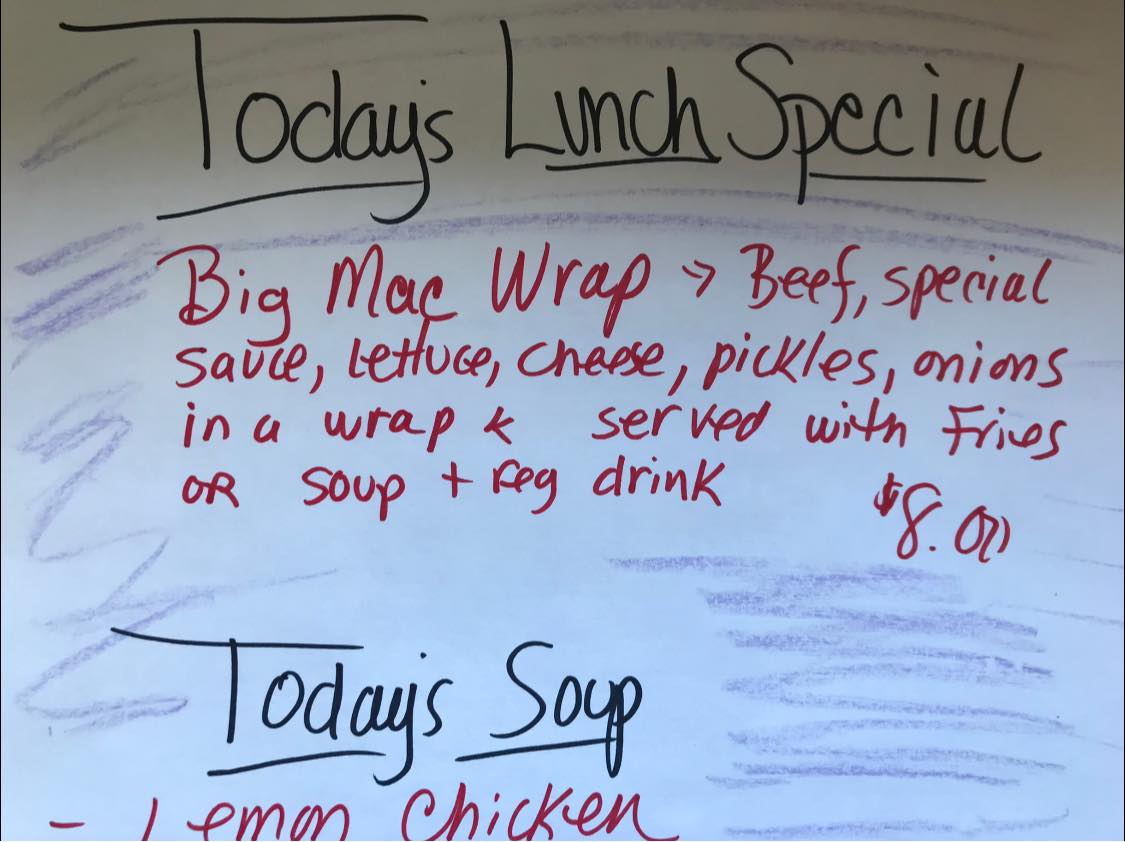 Today's Lunch Special
Big Mac Wrap > Beef, special
sauce, lettuce, cheese, pickles, onions
in a wrap & served with Fries
OR soup + reg drink
$8.00
Today's Soup
- Lemon Chicken